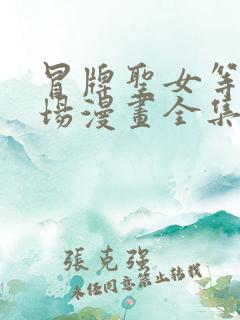 冒牌聖女等
場漫畫全集
張克強
未經同意禁止轉載